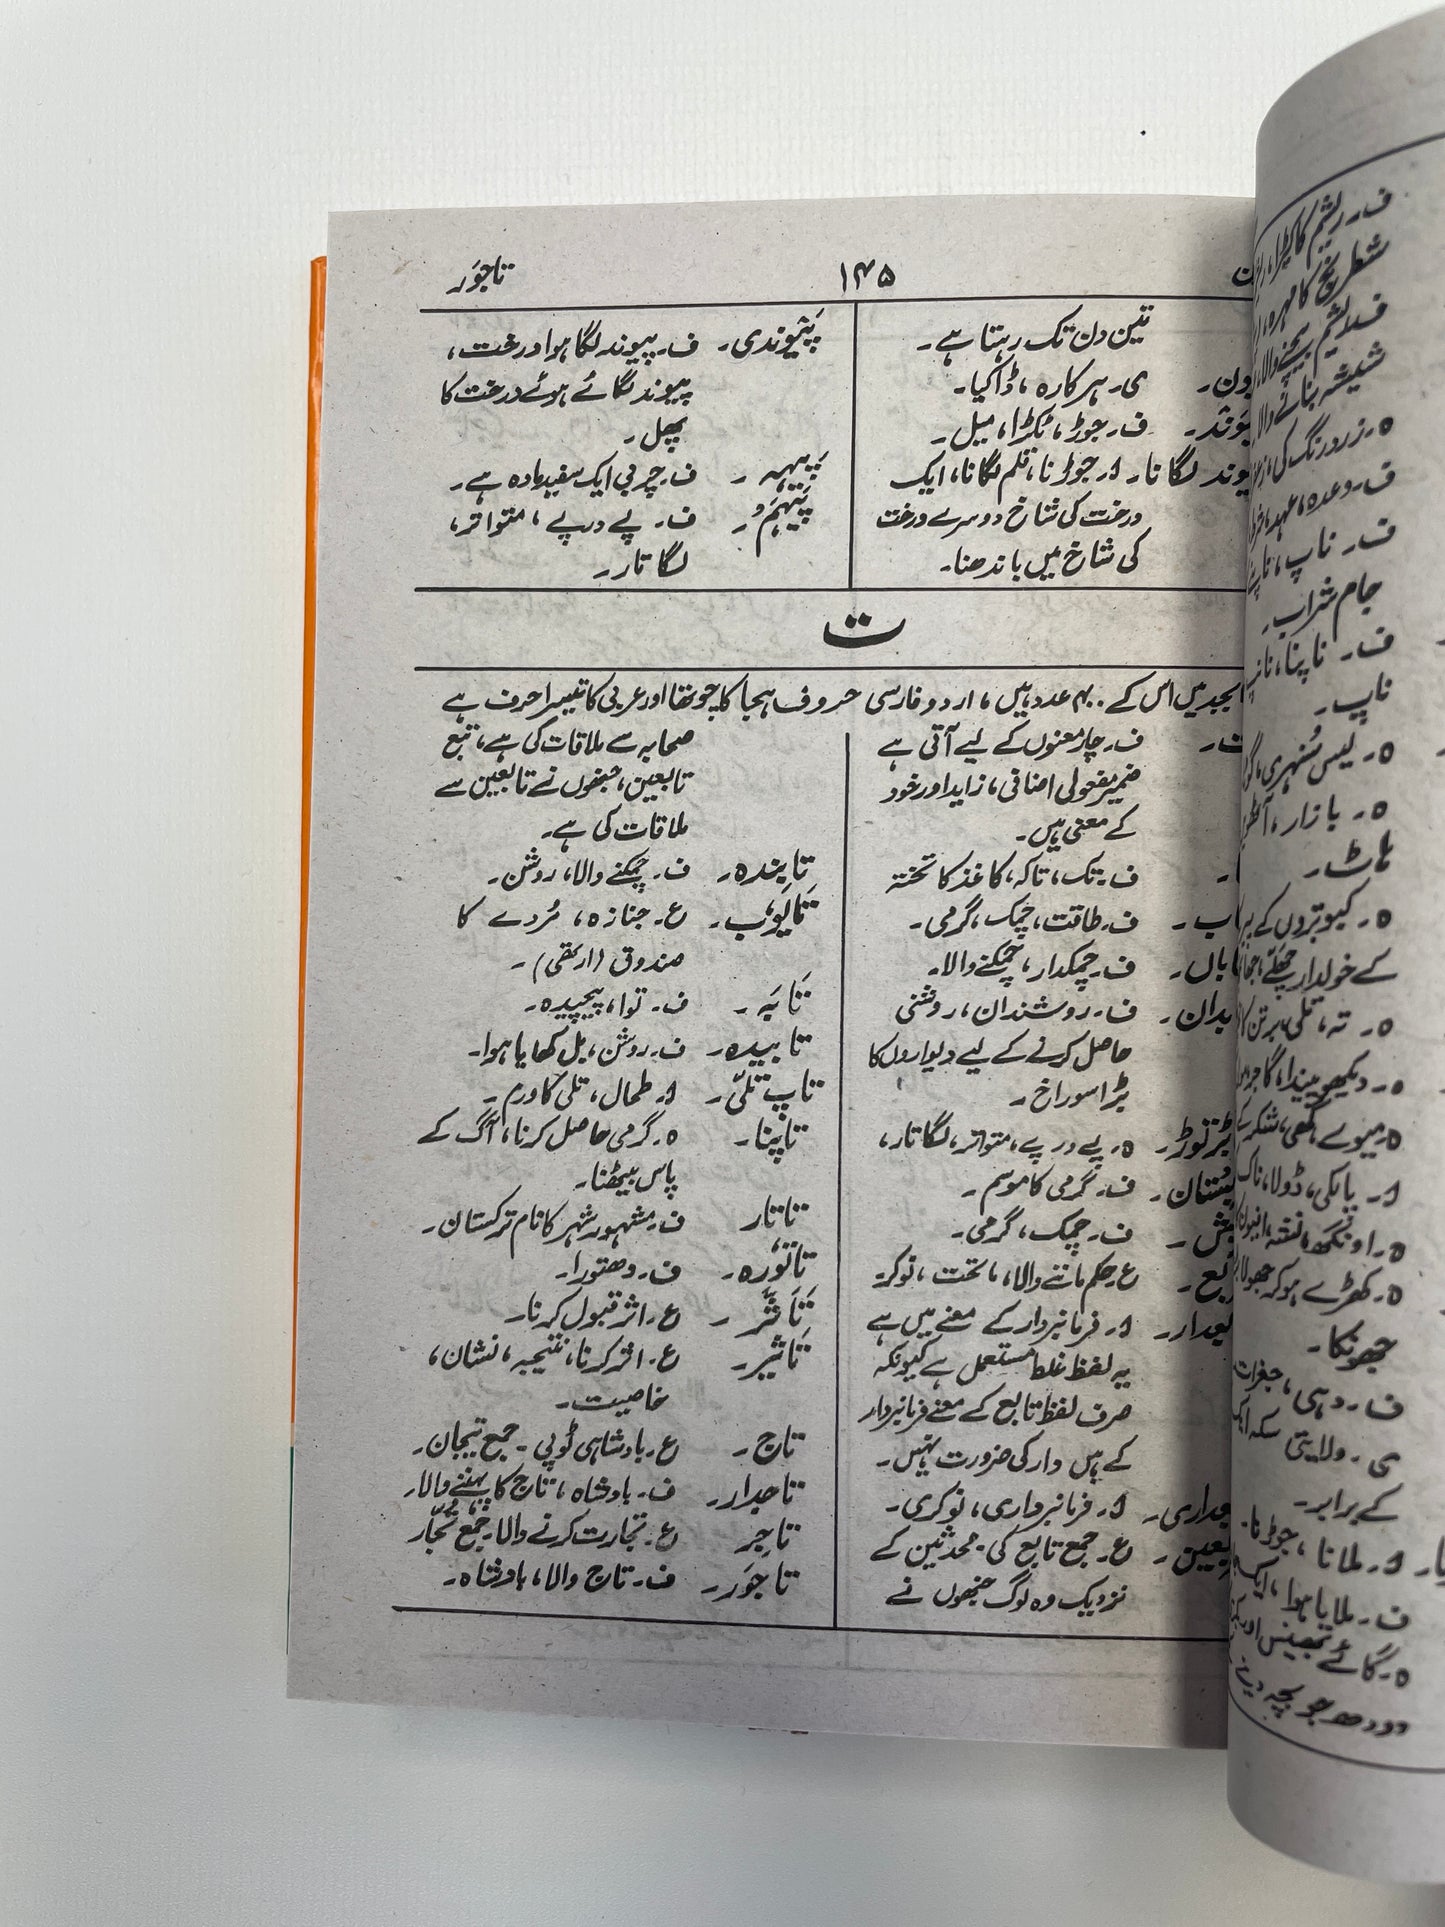 تاجوَر
۱۴۵
تین دن تک رہتا ہے۔
ی۔ ہرکارہ، ڈاکیا۔
ف۔ جوڑ، ٹکڑا، میل۔
وند لگانا۔ ا۔ جوڑنا، قلم لگانا، ایک
درخت کی شاخ دوسرے درخت
کی شاخ میں باندھنا۔
پَیوندی۔ ف۔ پیوند لگا ہوا درخت،
پیوند لگائے ہوئے درخت کا
پھل۔
پَیہہ۔ ف۔ چربی ایک سفید مادہ ہے۔
پَیہَم۔ ف۔ پے درپے، متواتر،
لگاتار۔
ت
میں اس کے ۴۰۰ عدد ہیں، اردو فارسی حروف ہجا کا چوتھا اور عربی کا تیسرا حرف ہے
ت۔ ف۔ چار معنوں کے لیے آتی ہے
ضمیر مفعولی اضافی، زاید اور خود
کے معنی ہیں۔
ف۔ تک، تاکہ، کاغذ کا تختہ
ف۔ طاقت، چمک، گرمی۔
ف۔ چمکدار، چمکنے والا۔
ف۔ روشندان، روشنی
حاصل کرنے کے لیے دیواروں کا
بڑا سوراخ۔
ہ۔ پے درپے، متواتر، لگاتار،
ف۔ گرمی کا موسم۔
ف۔ چمک، گرمی۔
ع۔ حکم ماننے والا، ماتحت، نوکر۔
ا۔ فرمانبردار کے معنے میں ہے
یہ لفظ غلط مستعمل ہے کیونکہ
صرف لفظ تابع کے معنے فرمانبردار
کے ہیں دار کی ضرورت نہیں۔
ا۔ فرمانبرداری، نوکری۔
ع۔ جمع تابع کی۔ محدثین کے
نزدیک وہ لوگ جنھوں نے
صحابہ سے ملاقات کی ہے، تبع
تابعین، جنھوں نے تابعین سے
ملاقات کی ہے۔
تابِندہ۔ ف۔ چمکنے والا، روشن۔
تابوت۔ ع۔ جنازہ، مُردے کا
صندوق (ارتھی)۔
تَابَہ۔ ف۔ توا، پیچیدہ۔
تابیدہ۔ ف۔ روشن، بل کھایا ہوا۔
تاپ تلّی۔ ا۔ طحال، تلی کا ورم۔
تاپنا۔ ہ۔ گرمی حاصل کرنا، آگ کے
پاس بیٹھنا۔
تاتار ف۔ مشہور شہر کا نام ترکستان۔
تاتورہ۔ ف۔ دھتورا۔
تَاَثُّر۔ ع۔ اثر قبول کرنا۔
تَاثیر۔ ع۔ اثر کرنا، نتیجہ، نشان،
خاصیت۔
تاج۔ ع۔ بادشاہی ٹوپی۔ جمع تیجان۔
تاجدار۔ ف۔ بادشاہ، تاج کا پہننے والا۔
تاجر ع۔ تجارت کرنے والا۔ جمع تُجّار
تاجوَر۔ ف۔ تاج والا، بادشاہ۔
شطرنج کا مہرہ،
شیشہ بنانے والا
ف۔ وعدہ، عہد،
ف۔ ناپ،
جام شراب۔
ف۔ ناپنا،
ناپ۔
ہ۔ لیس سُنہری،
ہ۔ بازار،
ہاٹ۔
ہ۔ کبوتروں کے
کے خولدار چھلّے،
ہ۔ تہ، تلی، برتن کا
ہ۔ دیکھو پیندا،
ا۔ پالکی، ڈولا،
ہ۔ اونگھ، نشہ،
ہ۔ کھڑے ہو کر جھولا
جھونکا۔
ف۔ دہی، جغرات
ی۔ ولایتی سکہ
کے برابر۔
ا۔ ملانا، جوڑنا۔
ف۔ ملایا ہوا،
ہ۔ گائے بھینس
دودھ جو بچہ